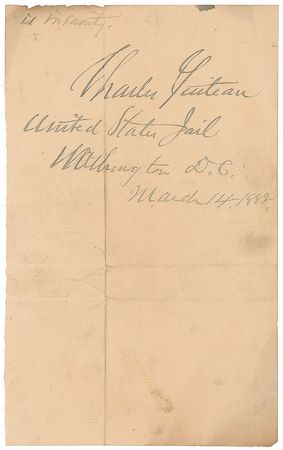 is insanity.
Charles Guiteau
United States Jail
Washington D.C.
March 14-1882